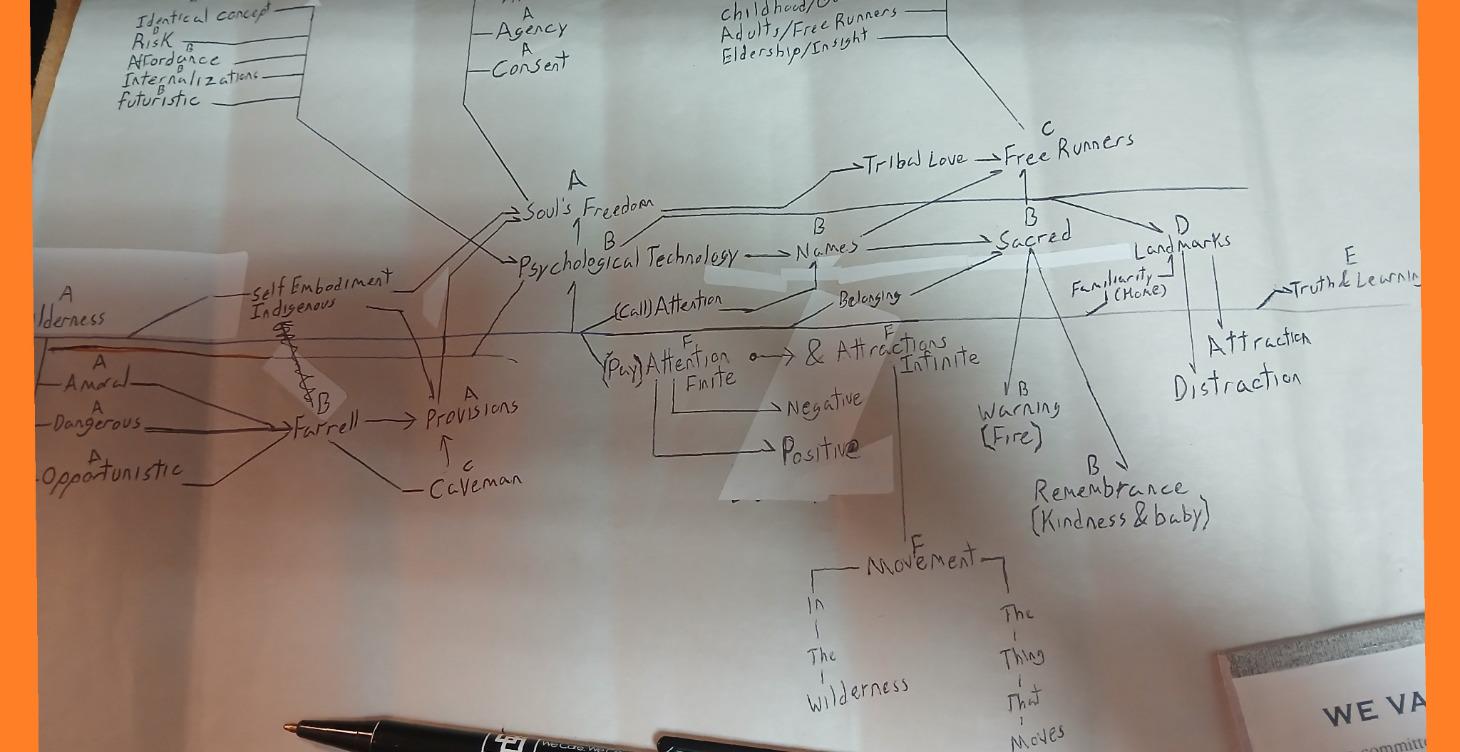 Identical concept
B
Risk
B
Affordance
B
Internalizations
B
futuristic
A
Agency
A
Consent
Adults/Free Runners
Eldership/Insight
C
Free Runners
Tribal Love
A
Soul's Freedom
B
Psychological Technology
B
Names
B
Sacred
D
Landmarks
Familiarity
(Home)
E
Truth & Learnin
A
lderness
Self Embodiment
Indigenous
(Call) Attention
Belonging
F
(Pay) Attention
Finite
F
& Attractions
Infinite
Negative
Positive
Attraction
Distraction
A
Amoral
A
Dangerous
A
Opportunistic
B
Farrell
A
Provisions
C
Caveman
B
Warning
(Fire)
B
Remembrance
(Kindness & baby)
F
Movement
In
The
Wilderness
The
Thing
That
Moves
WE VA
committe